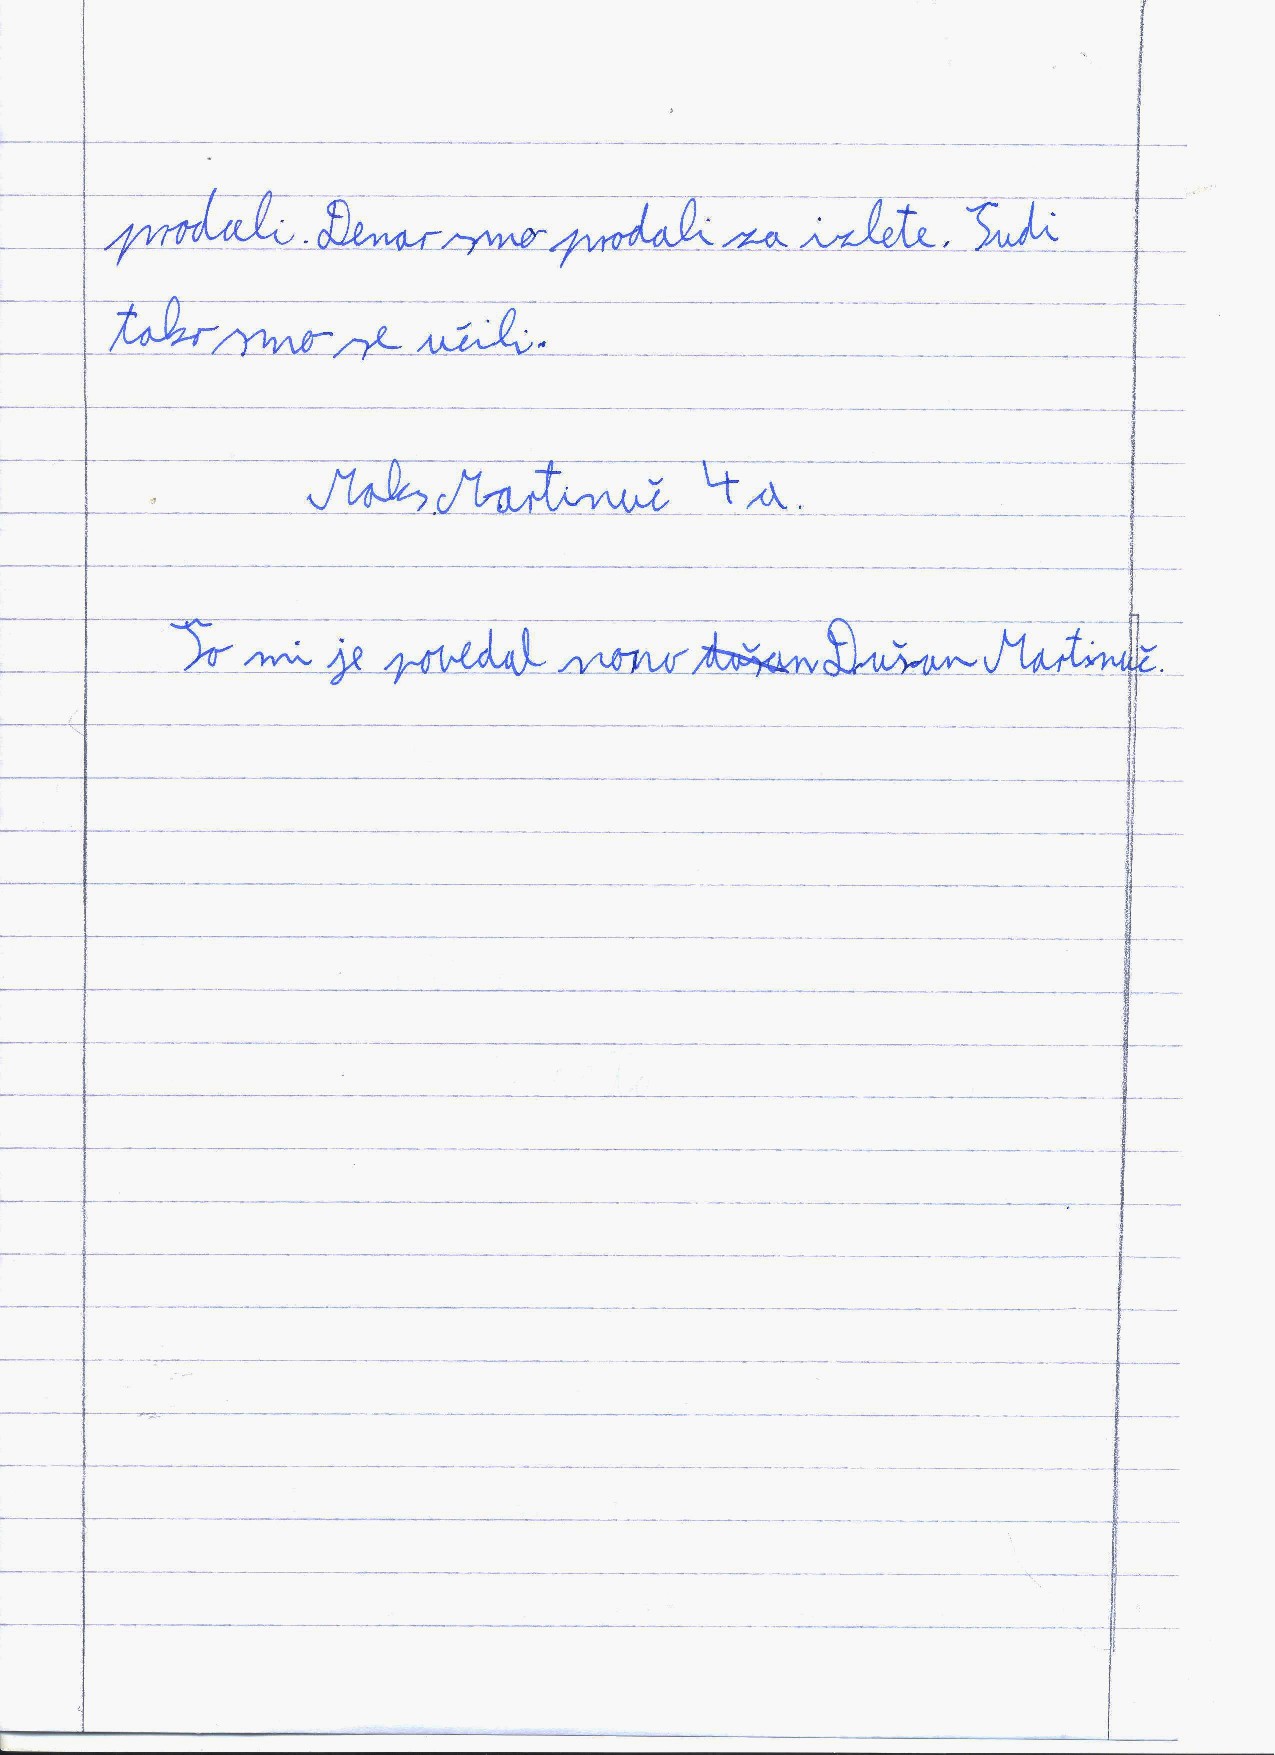 prodali. Denar smo prodali za izlete. Tudi
tako smo se učili.
Maks Martinuč 4 a.
To mi je povedal nono Dušan Martinuč.